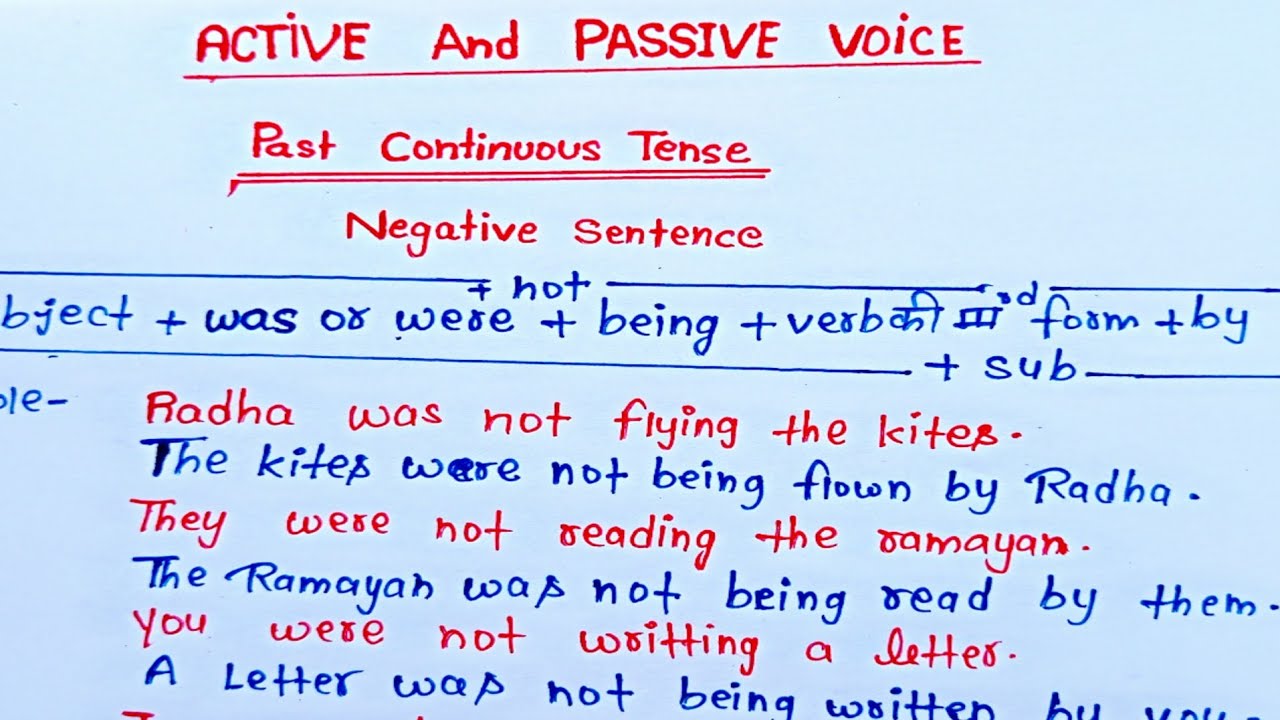 ACTIVE And PASSIVE VOICE
Past Continuous Tense
Negative Sentence
+ not
bject + was or were + being + verb की III rd form + by
+ sub
ple-
Radha was not flying the kites.
The kites were not being flown by Radha.
They were not reading the ramayan.
The Ramayan was not being read by them.
You were not writting a letter.
A Letter was not being written by you.